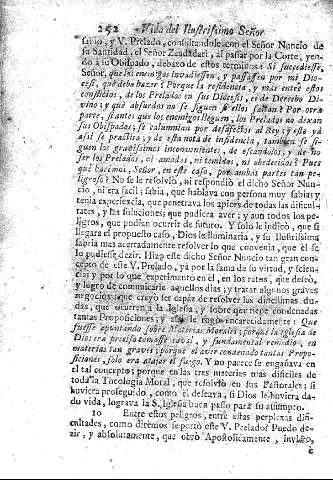 252 Vida del Ilustrissimo Señor
sabio, y V. Prelado, consultandole con el Señor Nuncio de
su Santidad, el Señor Zeadadari, al passar por la Corte, yen-
do a su Obispado, debaxo de estos terminos: Si sucediesse,
Señor, que los enemigos invadiessen, y passassen por mi Dio-
cesi, què debo hazer? Porque la residencia, y mas entre estos
conflictos, de los Prelados en sus Diocesis, es de Derecho Di-
vino; y què absurdos no se siguen si ellos faltan? Por otra
parte, si antes que los enemigos lleguen, los Prelados no dexan
sus Obispados; se calumnian por desafectos al Rey; y esto yà
assi se practica; y de esta nota de infidencia, tambien se si-
guen los gravissimos inconvenientes, de escandalos, y de no
ser los Prelados, ni amados, ni temidos, ni obedecidos? Pues
què haremos, Señor, en este caso, por ambas partes tan pe-
ligroso? No se le resolviò, ni respondiò el dicho Señor Nun-
cio, ni era facil; sabia, que hablava con persona muy sabia, y
tenia experiencia, que penetrava los apices de todas las dificul-
tades, y las soluciones; que pudiera aver; y aun todos los pe-
ligros, que podian ocurrir de futuro. Y solo le indicò, que si
llegara el propuesto caso, Dios le iluminaria, y su Ilustrissima
sabria mas acertadamente resolver lo que convenia, que èl se
lo pudiesse dezir. Hizo este dicho Señor Nuncio tan gran con-
cepto de este V. Prelado, yà por la fama de su virtud, y scien-
cias; y por lo que experimentò en el, en los ratos, que deseò,
y logrò de comunicarle aquellos dias; y tratar algunos graves
negocios; que creyò ser capaz de resolver las dificilimas du-
das, que ocurren à la Iglesia, y sobre que tiene condenadas
tantas Proposiciones; y assi le rogò encarecidamente: Que
fuesse apuntando sobre Materias Morales; porque la Iglesia de
Dios era preciso tomasse cabal, y fundamental remedio, en
materias tan graves; porque el aver condenado tantas Propo-
siciones, solo era atajar el fuego. Y no parece se engañava en
el tal concepto; porque en las tres materias mas dificiles de
toda la Theologia Moral, que resolviò en sus Pastorales; si
huviera proseguido, como èl deseava, si Dios le huviera da-
do vida, lograva la S. Iglesia buen passo para su assumpto.
10 Entre estos peligros, entre estas perplexas difi-
cultades, como diremos se portò este V. Prelado? Puedo de-
zir, y absolutamente, que obrò Apostolicamente,